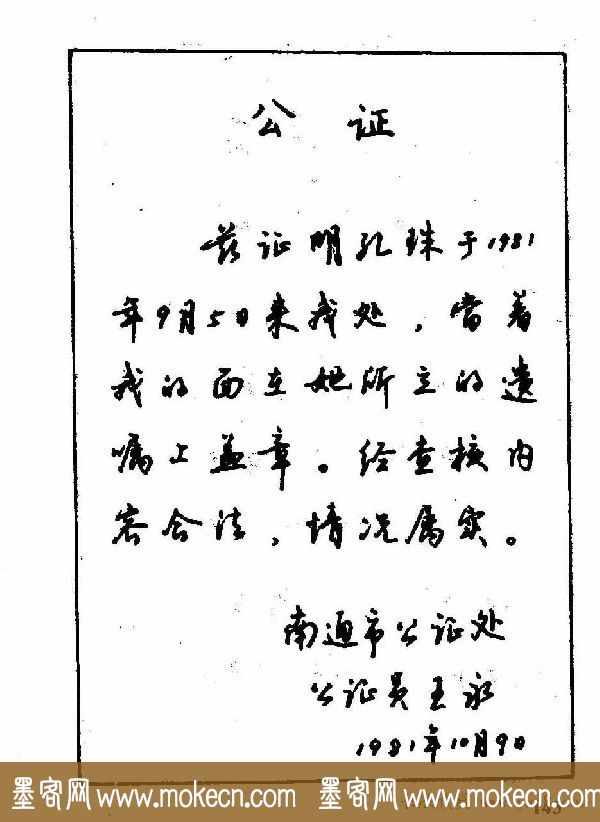 公证
兹证明孔珠于1981
年9月5日来我处，当着
我的面在她所立的遗
嘱上盖章。经查核内
容合法，情况属实。
南通市公证处
公证员 王永
1981年10月9日
墨客网 www.mokecn.com 墨客网 www.mokecn.com